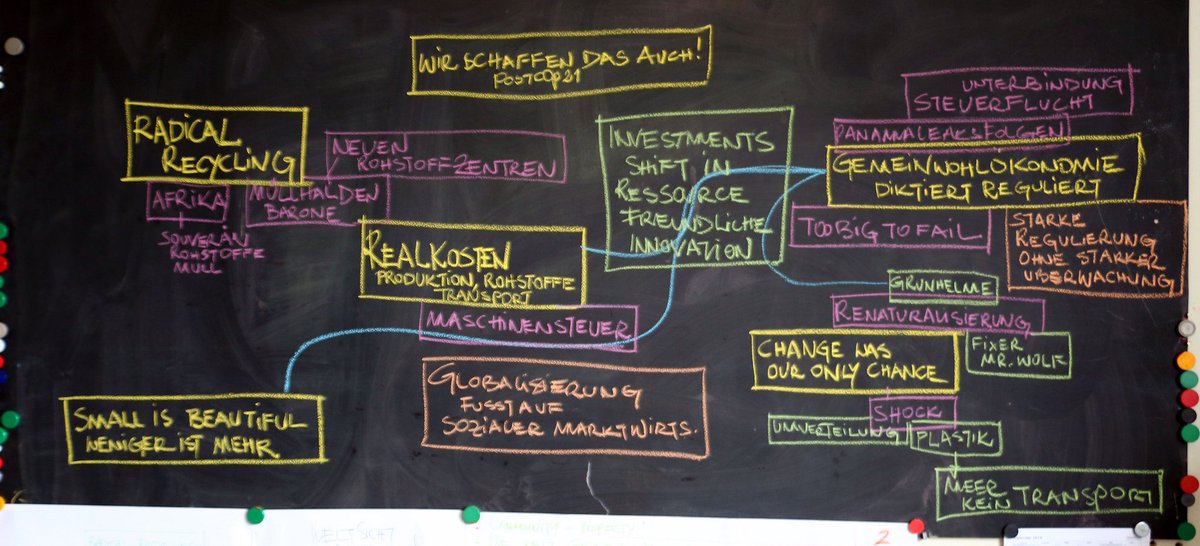 WIR SCHAFFEN DAS AUCH!
POSTCOP21
RADICAL
RECYCLING
NEUEN
ROHSTOFFZENTREN
AFRIKA
MÜLLHALDEN
BARONE
SOUVERÄN
ROHSTOFFE
MÜLL
REALKOSTEN
PRODUKTION, ROHSTOFFE
TRANSPORT
MASCHINENSTEUER
INVESTMENTS
SHIFT IN
RESSOURCE
FREUNDLICHE
INNOVATION
UNTERBINDUNG
STEUERFLUCHT
PANAMALEAKSFOLGEN
GEMEINWOHLÖKONOMIE
DIKTIERT REGULIERT
TOO BIG TO FAIL
STARKE
REGULIERUNG
OHNE STARKER
ÜBERWACHUNG
GRÜNHELME
RENATURALISIERUNG
FIXER
MR. WOLF
CHANGE WAS
OUR ONLY CHANCE
SHOCK
UMVERTEILUNG
PLASTIK
MEER TRANSPORT
KEIN
SMALL IS BEAUTIFUL
WENIGER IST MEHR
GLOBALISIERUNG
FUSST AUF
SOZIALER MARKTWIRTS.
WELTSICHT
2